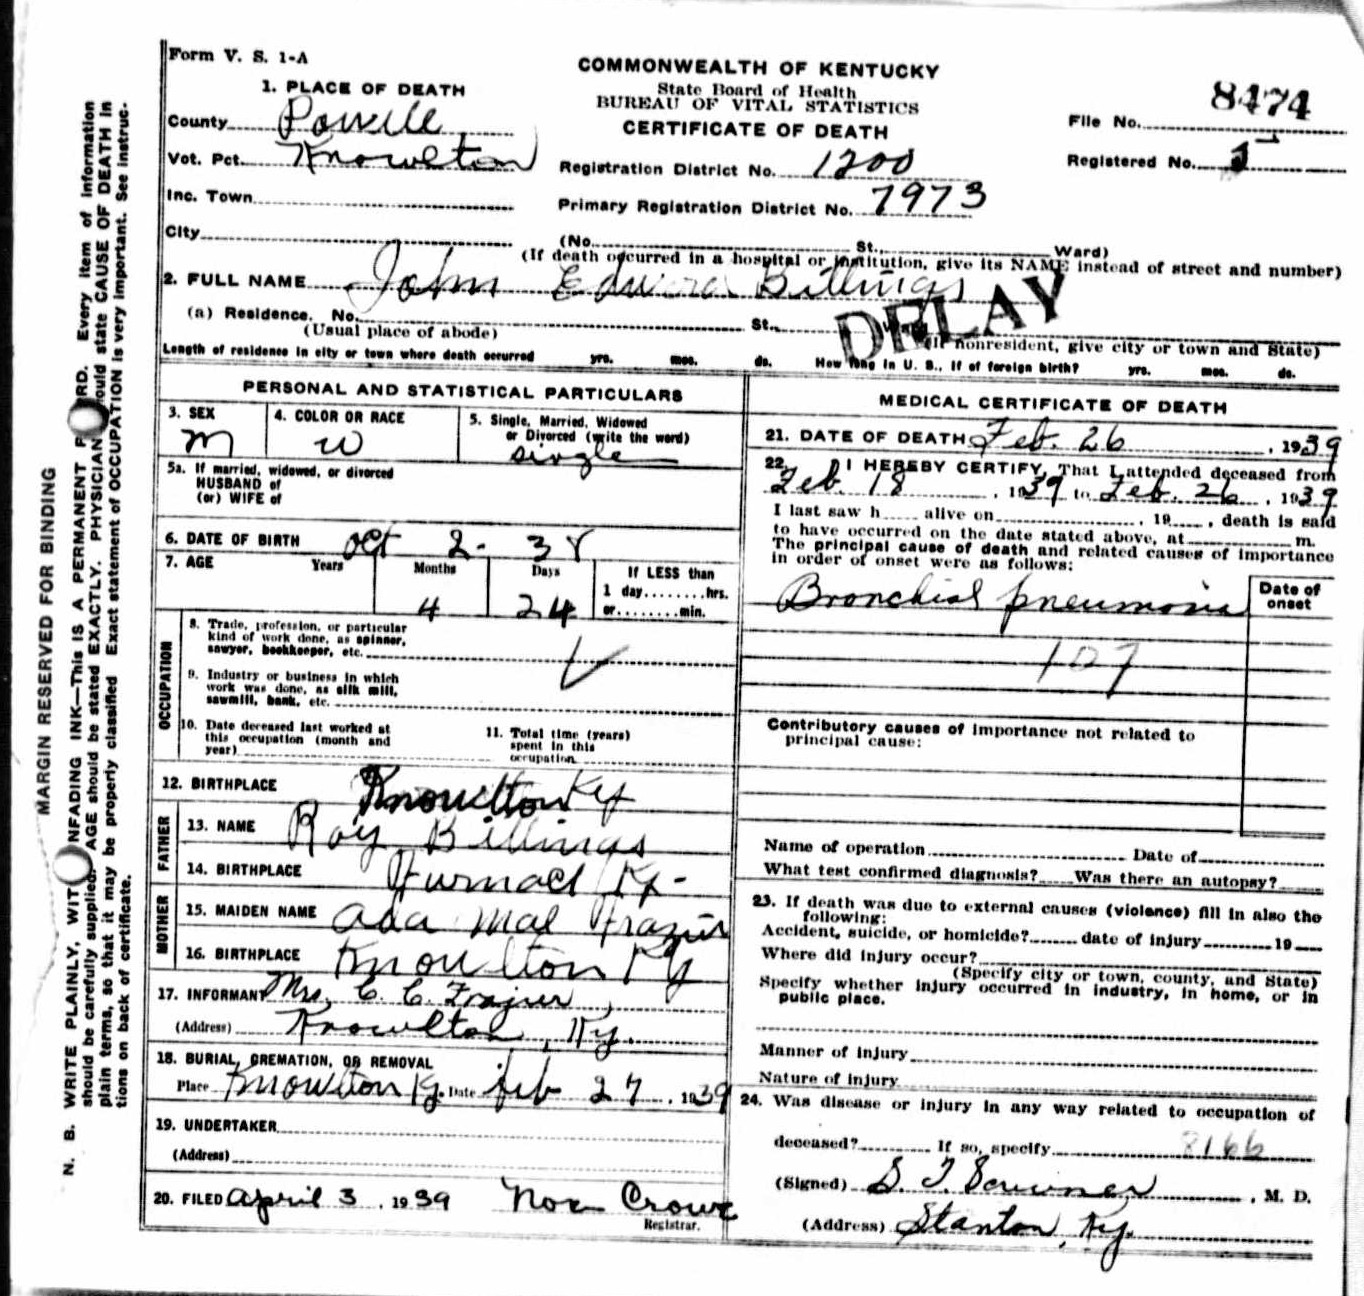 Form V. S. 1-A
COMMONWEALTH OF KENTUCKY
State Board of Health
BUREAU OF VITAL STATISTICS
CERTIFICATE OF DEATH
File No. 8474
Registered No. 5
1. PLACE OF DEATH
County Powell
Vot. Pct. Knowlton
Inc. Town
City
Registration District No. 1200
Primary Registration District No. 7973
(No. St. Ward)
(If death occurred in a hospital or institution, give its NAME instead of street and number)
2. FULL NAME John Edward Billings
DELAY
(a) Residence. No. St.,
(Usual place of abode) (If nonresident, give city or town and State)
Length of residence in city or town where death occurred yrs. mos. ds. How long in U. S., if of foreign birth? yrs. mos. ds.
PERSONAL AND STATISTICAL PARTICULARS
3. SEX
m
4. COLOR OR RACE
w
5. Single, Married, Widowed
or Divorced (write the word)
single
5a. If married, widowed, or divorced
HUSBAND of
(or) WIFE of
6. DATE OF BIRTH Oct 2- 38
7. AGE Years Months Days If LESS than
4 24 1 day........hrs.
or........min.
OCCUPATION
8. Trade, profession, or particular
kind of work done, as spinner,
sawyer, bookkeeper, etc.
9. Industry or business in which
work was done, as silk mill,
sawmill, bank, etc.
10. Date deceased last worked at
this occupation (month and
year)
11. Total time (years)
spent in this
occupation
12. BIRTHPLACE Knowlton Ky
FATHER
13. NAME Roy Billings
14. BIRTHPLACE Furnace Ky-
MOTHER
15. MAIDEN NAME Ada Mae Frazier
16. BIRTHPLACE Knowlton Ky
17. INFORMANT Mrs, C. C. Frazier,
(Address) Knowlton, Ky.
18. BURIAL, CREMATION, OR REMOVAL
Place Knowlton Ky. Date feb 27, 1939
19. UNDERTAKER
(Address)
20. FILED April 3, 1939 Noe Crowe
Registrar.
MEDICAL CERTIFICATE OF DEATH
21. DATE OF DEATH Feb. 26, 1939
22. I HEREBY CERTIFY, That I attended deceased from
Feb. 18, 1939 to Feb. 26, 1939
I last saw h alive on , 19 , death is said
to have occurred on the date stated above, at m.
The principal cause of death and related causes of importance
in order of onset were as follows:
Date of
onset
Bronchial pneumonia
107
Contributory causes of importance not related to
principal cause:
Name of operation Date of
What test confirmed diagnosis? Was there an autopsy?
23. If death was due to external causes (violence) fill in also the
following:
Accident, suicide, or homicide? date of injury 19
Where did injury occur?
(Specify city or town, county, and State)
Specify whether injury occurred in industry, in home, or in
public place.
Manner of injury
Nature of injury
24. Was disease or injury in any way related to occupation of
deceased? If so, specify 8166
(Signed) , M. D.
(Address) Stanton, Ky.
MARGIN RESERVED FOR BINDING
N. B. WRITE PLAINLY, WITH UNFADING INK—This is A PERMANENT RECORD. Every item of information
should be carefully supplied. AGE should be stated EXACTLY. PHYSICIANS should state CAUSE OF DEATH in
plain terms, so that it may be properly classified. Exact statement of OCCUPATION is very important. See instruc-
tions on back of certificate.